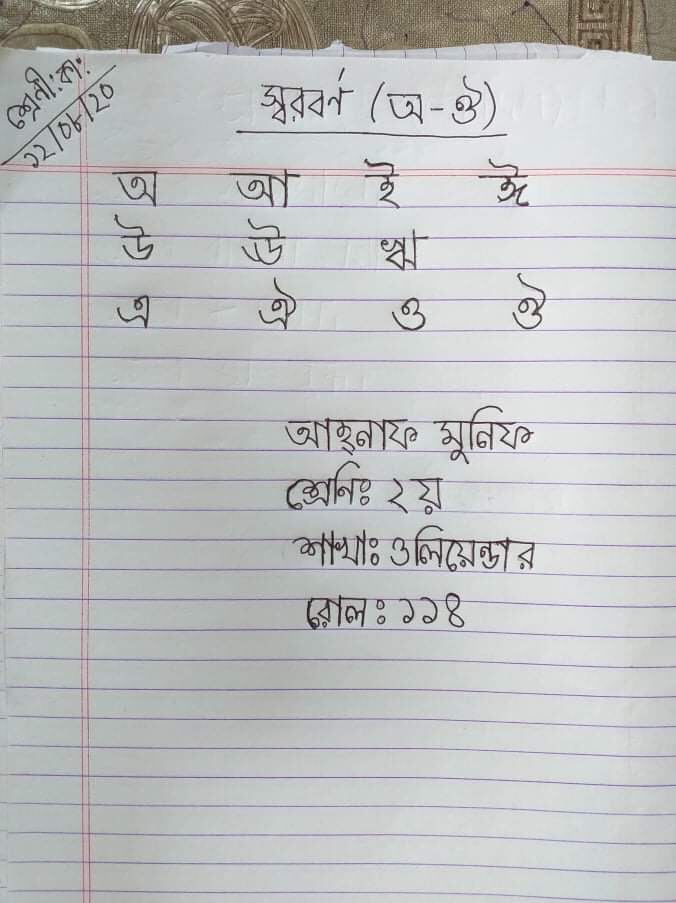 শ্রেণী:কা:
১২/০৮/২০
স্বরবর্ণ (অ-ঔ)
অ আ ই ঈ
উ ঊ ঋ
এ ঐ ও ঔ
আহনাফ মুনিফ
শ্রেনিঃ ২য়
শাখাঃ ওলিয়েন্ডার
রোলঃ ১১৪